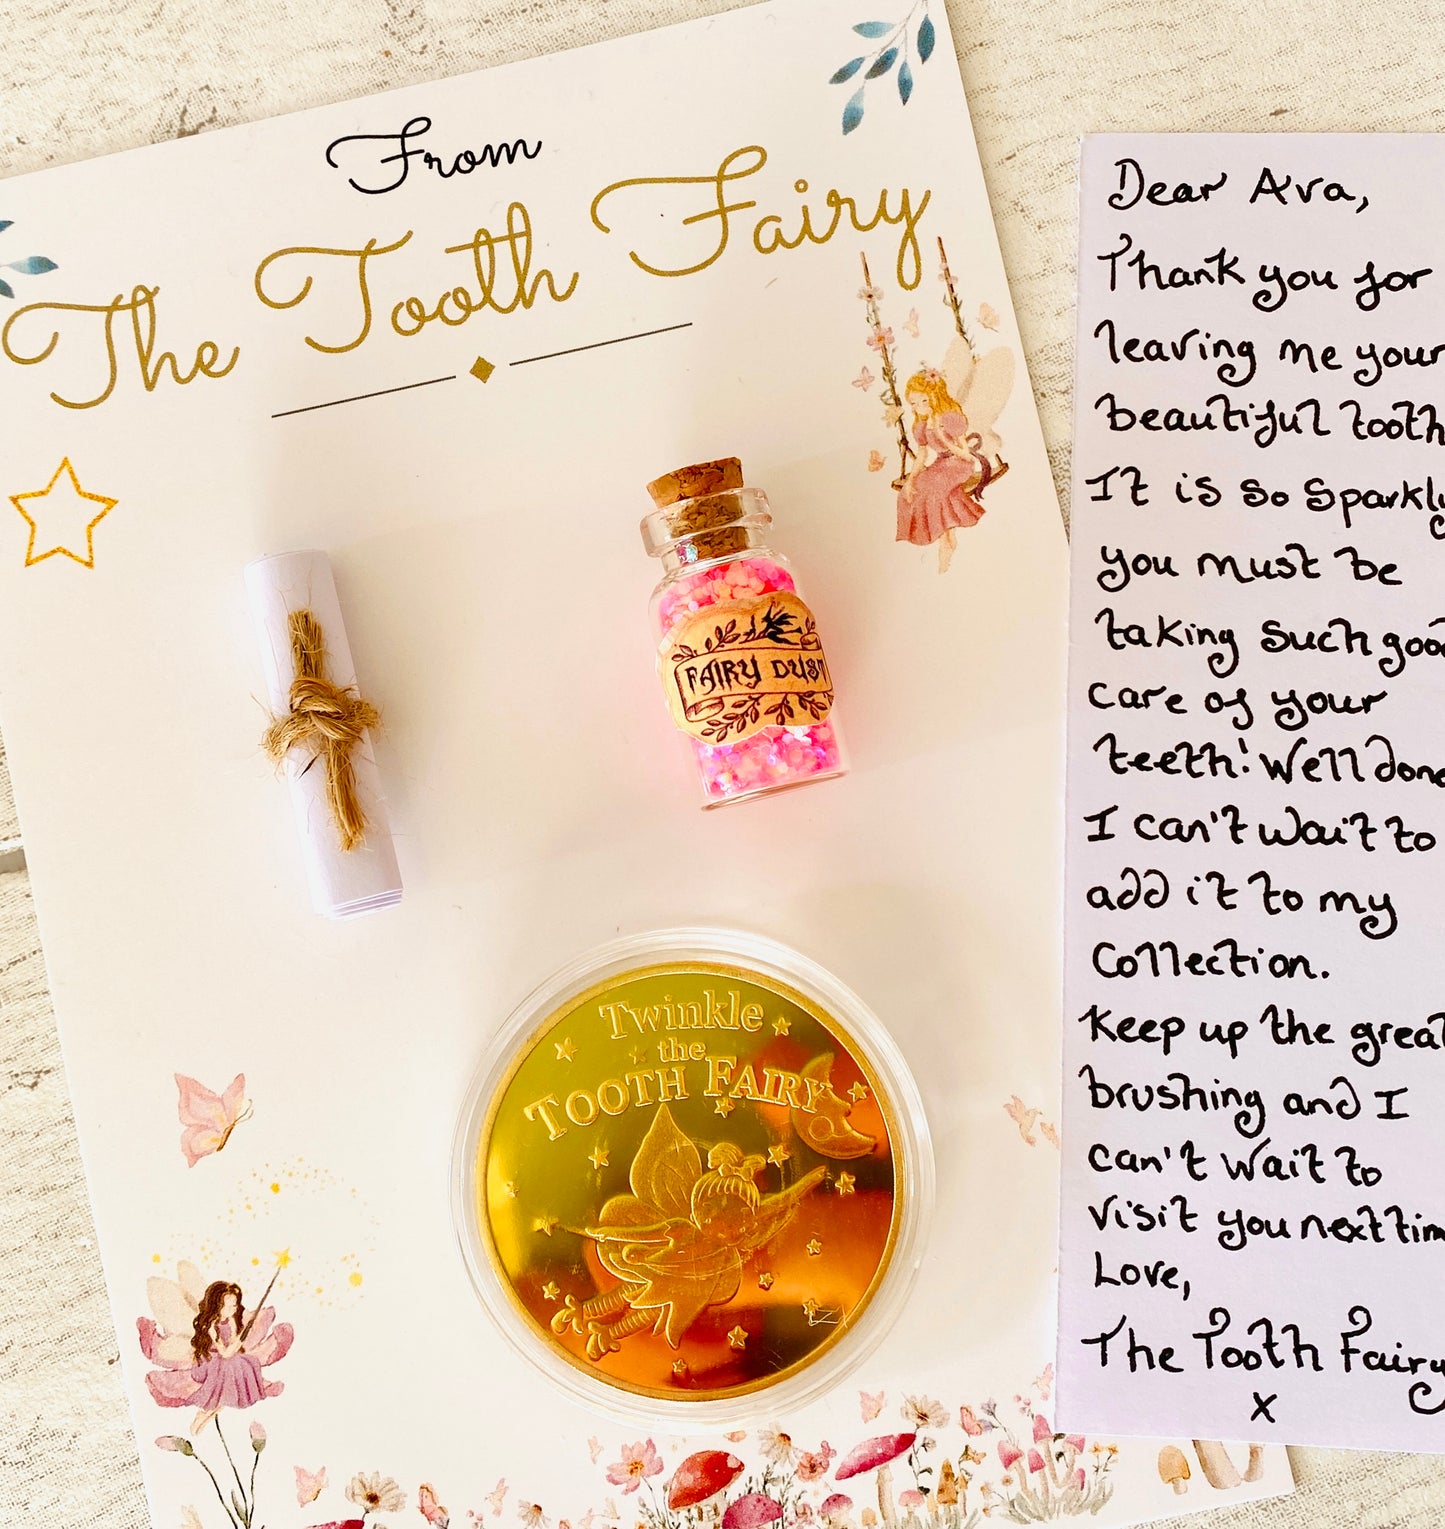 From
The Tooth Fairy
FAIRY DUST
Twinkle
the
TOOTH FAIRY
Dear Ava,
Thank you for
leaving me your
beautiful tooth
It is so Sparkly
you must be
taking such good
care of your
teeth! Well done
I can't wait to
add it to my
Collection.
Keep up the great
brushing and I
can't wait to
visit you next tim
Love,
The Tooth Fairy
x